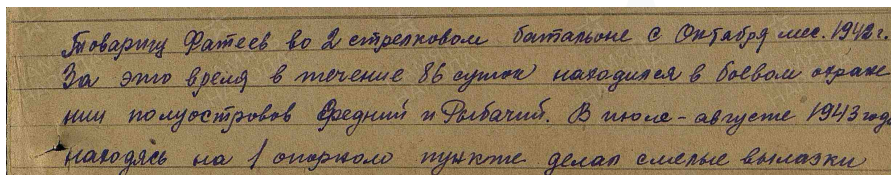 Товарищ Фатеев во 2 стрелковом батальоне с Октября мес. 1942 г.
За это время в течение 86 суток находился в боевом охране
нии полуостровов Средний и Рыбачий. В июле - августе 1943 года
находясь на 1 опорном пункте делал смелые вылазки